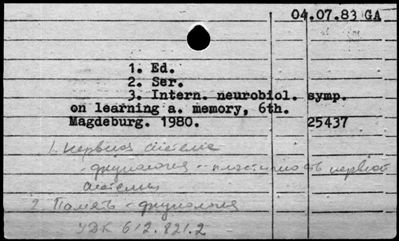 04.07.83 GA
1. Ed.
2. Ser.
3. Intern. neurobiol. symp.
on learning a. memory, 6th.
Magdeburg. 1980.
25437
1. Нервная система
- физиология - пластичность нервной
системы
2. Память - физиология
УДК 612.821.2